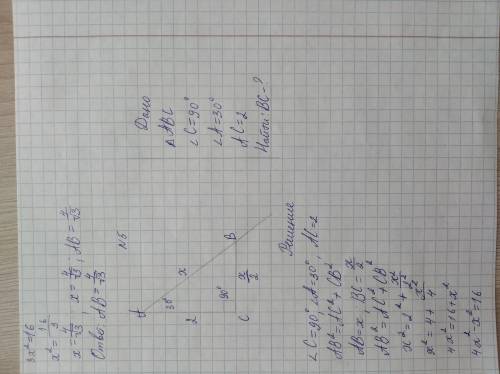 3x²=16
x²=16/3
x=4/√3 , x=4/√3 ; AB=4/√3
Ответ: AB=4/√3
№5
A
30°
x
2
90°
C
x/2
B
Дано
△ABC
∠C=90°
∠A=30°
AC=2
Найти: BC-?
Решение
∠C=90°, ∠A=30°, AC=2
AB²=AC²+CB²
AB=x, BC=x/2
AB²=AC²+CB²
x²=2²+x²/2²
x²=4+x²/4
4x²=16+x²
4x²-x²=16